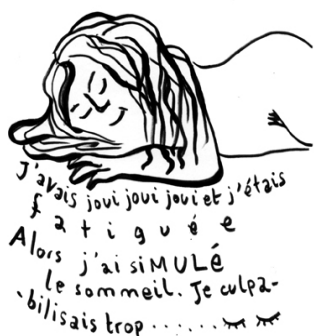 J'avais joui joui joui et j'étais
fatiguée
Alors j'ai siMULé
le sommeil. Je culpa-
bilisais trop.......